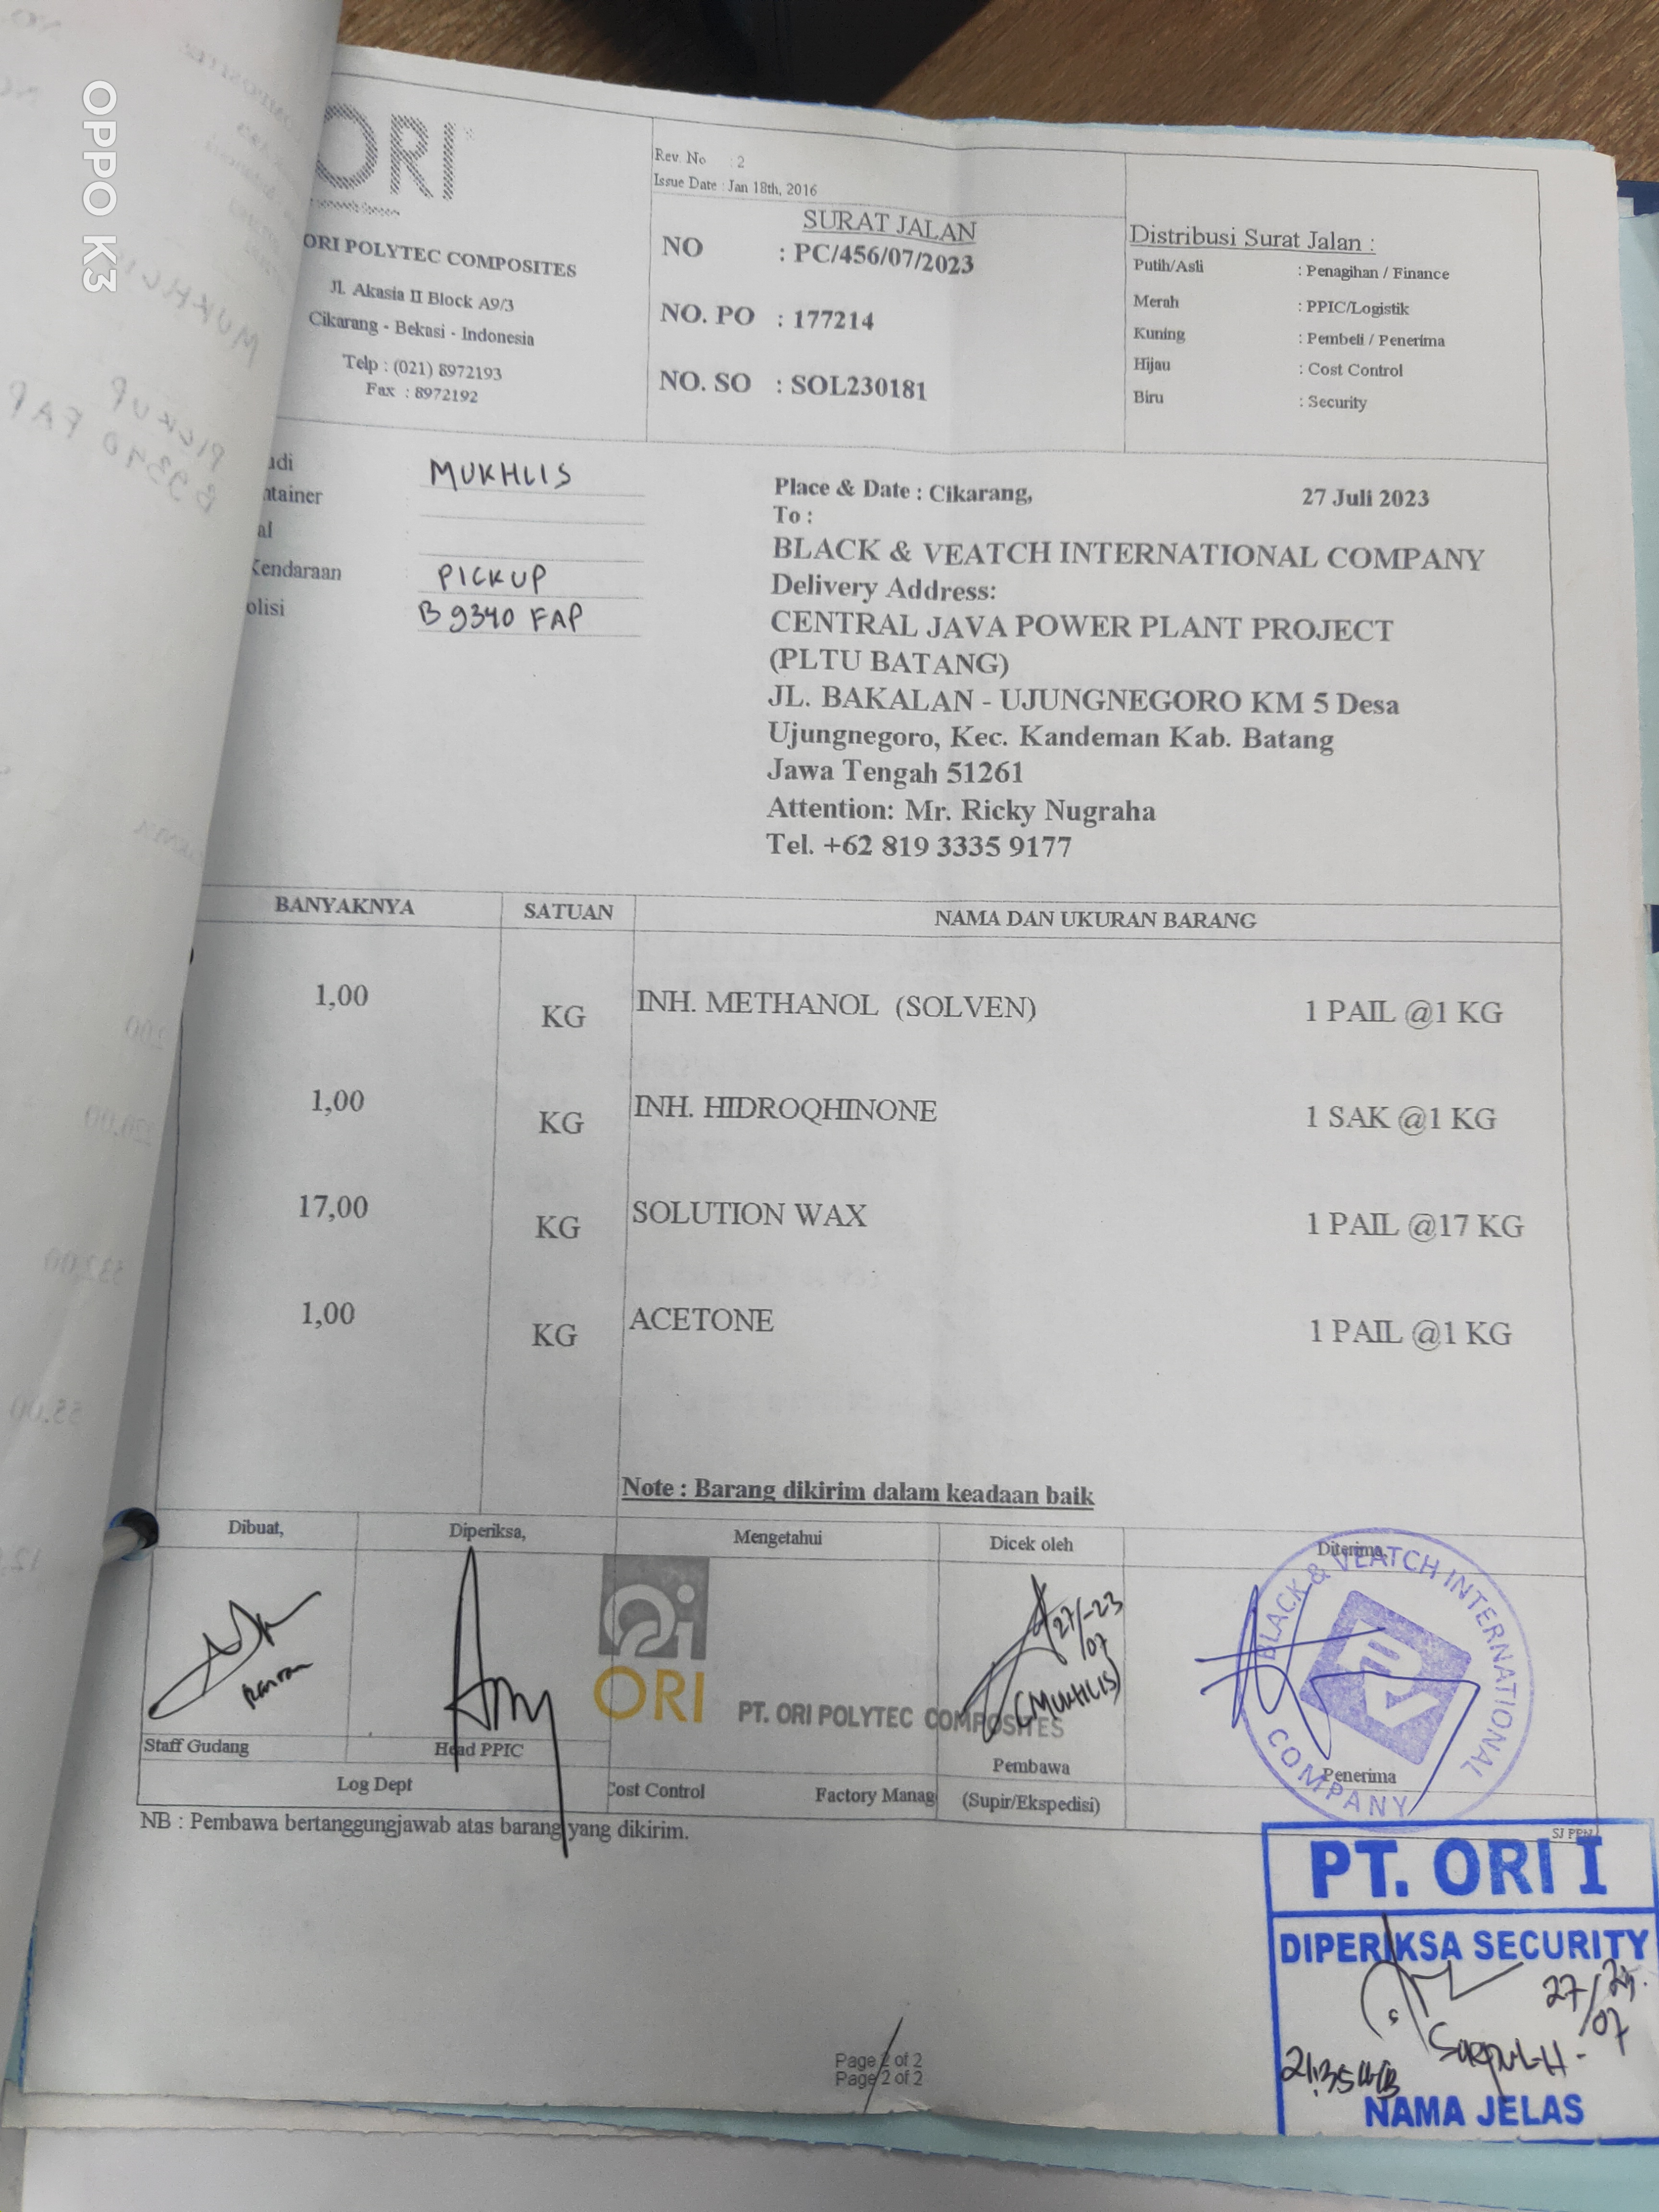 OPPO K3
ORI
ORI POLYTEC COMPOSITES
Jl. Akasia II Block A9/3
Cikarang - Bekasi - Indonesia
Telp : (021) 8972193
Fax : 8972192
Rev. No : 2
Issue Date : Jan 18th, 2016
SURAT JALAN
NO : PC/456/07/2023
NO. PO : 177214
NO. SO : SOL230181
Distribusi Surat Jalan :
Putih/Asli : Penagihan / Finance
Merah : PPIC/Logistik
Kuning : Pembeli / Penerima
Hijau : Cost Control
Biru : Security
MUKHLIS
ntainer
Kendaraan PICKUP
olisi B 9340 FAP
Place & Date : Cikarang, 27 Juli 2023
To :
BLACK & VEATCH INTERNATIONAL COMPANY
Delivery Address:
CENTRAL JAVA POWER PLANT PROJECT
(PLTU BATANG)
JL. BAKALAN - UJUNGNEGORO KM 5 Desa
Ujungnegoro, Kec. Kandeman Kab. Batang
Jawa Tengah 51261
Attention: Mr. Ricky Nugraha
Tel. +62 819 3335 9177
BANYAKNYA SATUAN NAMA DAN UKURAN BARANG
1,00 KG INH. METHANOL (SOLVEN) 1 PAIL @1 KG
1,00 KG INH. HIDROQHINONE 1 SAK @1 KG
17,00 KG SOLUTION WAX 1 PAIL @17 KG
1,00 KG ACETONE 1 PAIL @1 KG
Note : Barang dikirim dalam keadaan baik
Dibuat, Diperiksa, Mengetahui Dicek oleh Diterima,
27/-23
07
(MUKHLIS)
ORI PT. ORI POLYTEC COMPOSITES
BLACK & VEATCH INTERNATIONAL COMPANY
Staff Gudang Head PPIC Pembawa Penerima
Log Dept Cost Control Factory Manag (Supir/Ekspedisi)
NB : Pembawa bertanggungjawab atas barang yang dikirim.
SJ PPN
PT. ORI I
DIPERIKSA SECURITY
27/23.
07
NAMA JELAS
Page 2 of 2
Page 2 of 2